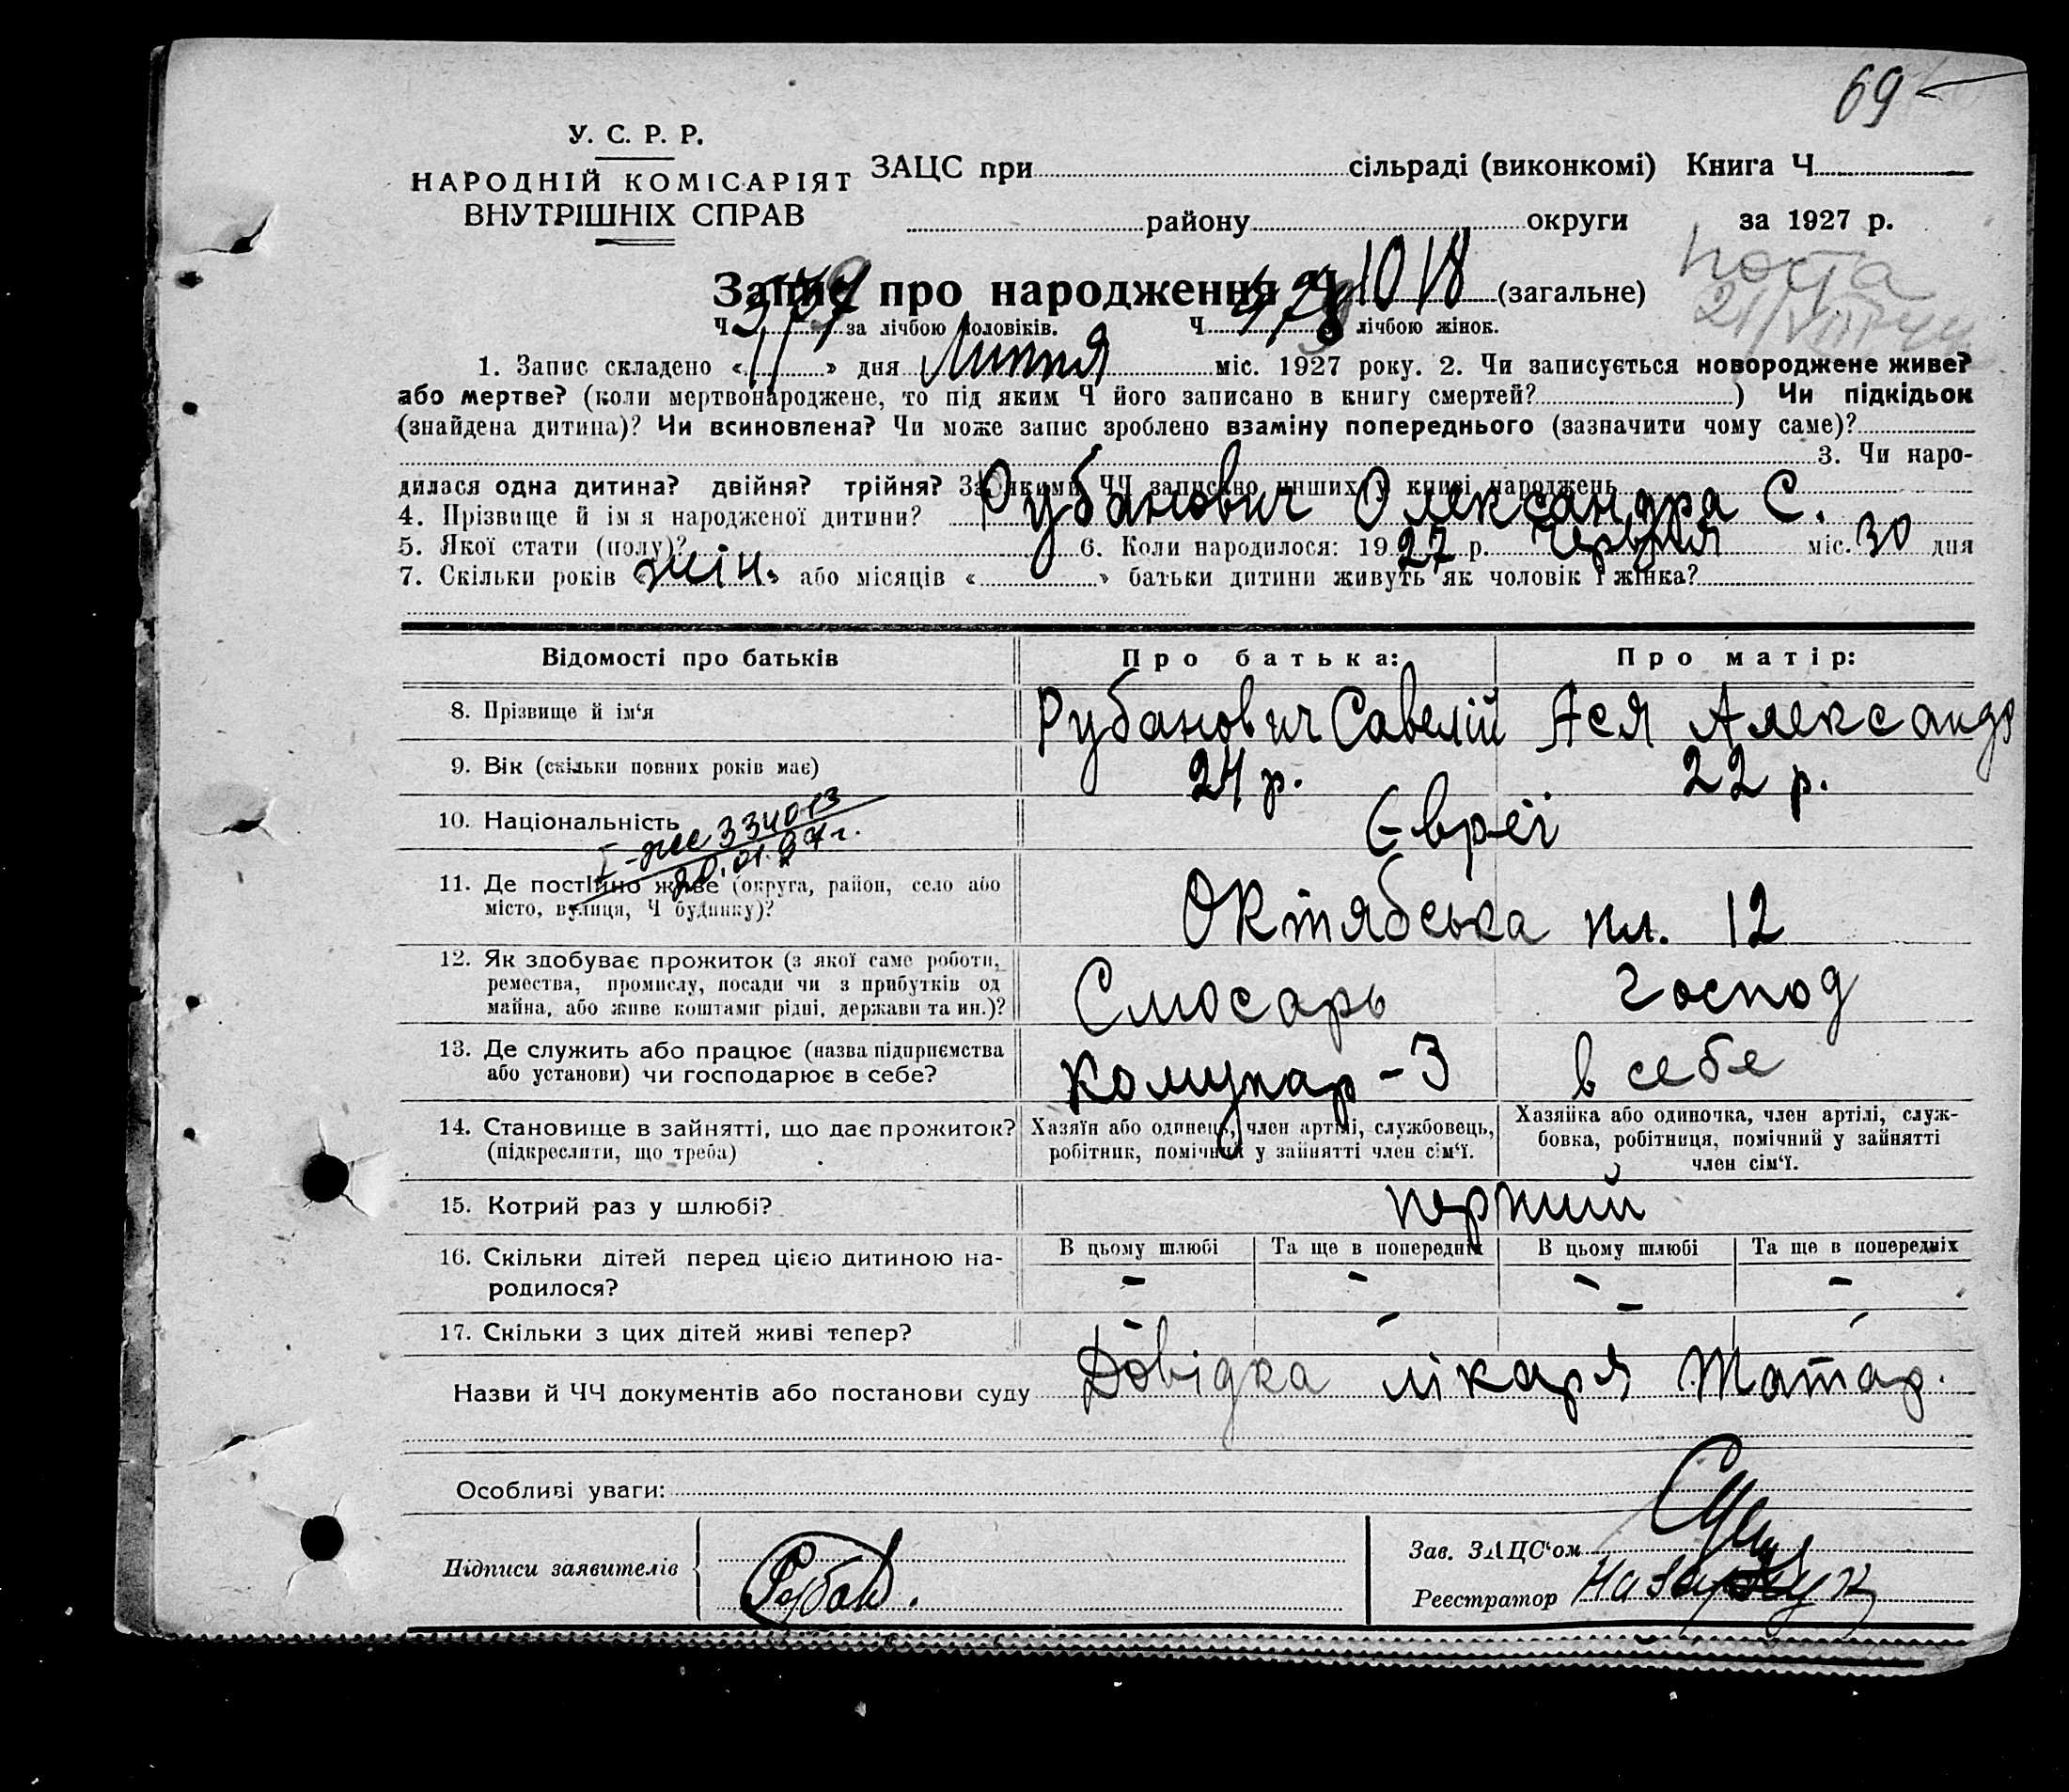 69
У. С. Р. Р.
НАРОДНІЙ КОМІСАРІЯТ
ВНУТРІШНІХ СПРАВ
ЗАЦС при сільраді (виконкомі) Книга Ч
району округи за 1927 р.
Запис про народження Ч 1018 (загальне)
Ч за лічбою чоловіків. Ч лічбою жінок.
1. Запис складено «11» дня Липня міс. 1927 року. 2. Чи записується новороджене живе?
або мертве? (коли мертвонароджене, то під яким Ч його записано в книгу смертей? ) Чи підкідьок
(знайдена дитина)? Чи всиновлена? Чи може запис зроблено взаміну попереднього (зазначити чому саме)?
3. Чи наро-
дилася одна дитина? двійня? трійня? За якими ЧЧ записано инших у книзі народжень
4. Прізвище й ім я народженої дитини? Рубанович Олександра С.
5. Якої стати (полу)? жін. 6. Коли народилося: 1927 р. Червня міс. 30 дня
7. Скільки років « » або місяців « » батьки дитини живуть як чоловік і жінка?
Відомості про батьків Про батька: Про матір:
8. Прізвище й ім‘я Рубанович Савелій Ася Александр
9. Вік (скільки повних років має) 24 р. 22 р.
10. Національність Євреї
334013
11. Де постійно живе (округа, район, село або
місто, вулиця, Ч будинку)? Октябська пл. 12
12. Як здобуває прожиток (з якої саме роботи,
ремества, промислу, посади чи з прибутків од
майна, або живе коштами рідні, держави та ин.)? Слюсарь Господ
13. Де служить або працює (назва підприємства
або установи) чи господарює в себе? Комунар-3 в себе
14. Становище в зайнятті, що дає прожиток?
(підкреслити, що треба)
Хазяїн або одинець, член артілі, службовець,
робітник, помічний у зайнятті член сім‘ї.
Хазяйка або одиночка, член артілі, служ-
бовка, робітниця, помічний у зайнятті
член сім‘ї.
15. Котрий раз у шлюбі? перший
16. Скільки дітей перед цією дитиною на-
родилося?
В цьому шлюбі Та ще в попередніх В цьому шлюбі Та ще в попередніх
- - - -
17. Скільки з цих дітей живі тепер? - - - -
Назви й ЧЧ документів або постанови суду Довідка лікаря Татар.
Особливі уваги:
Підписи заявителів Рубан.
Зав. ЗАЦС‘ом
Реєстратор